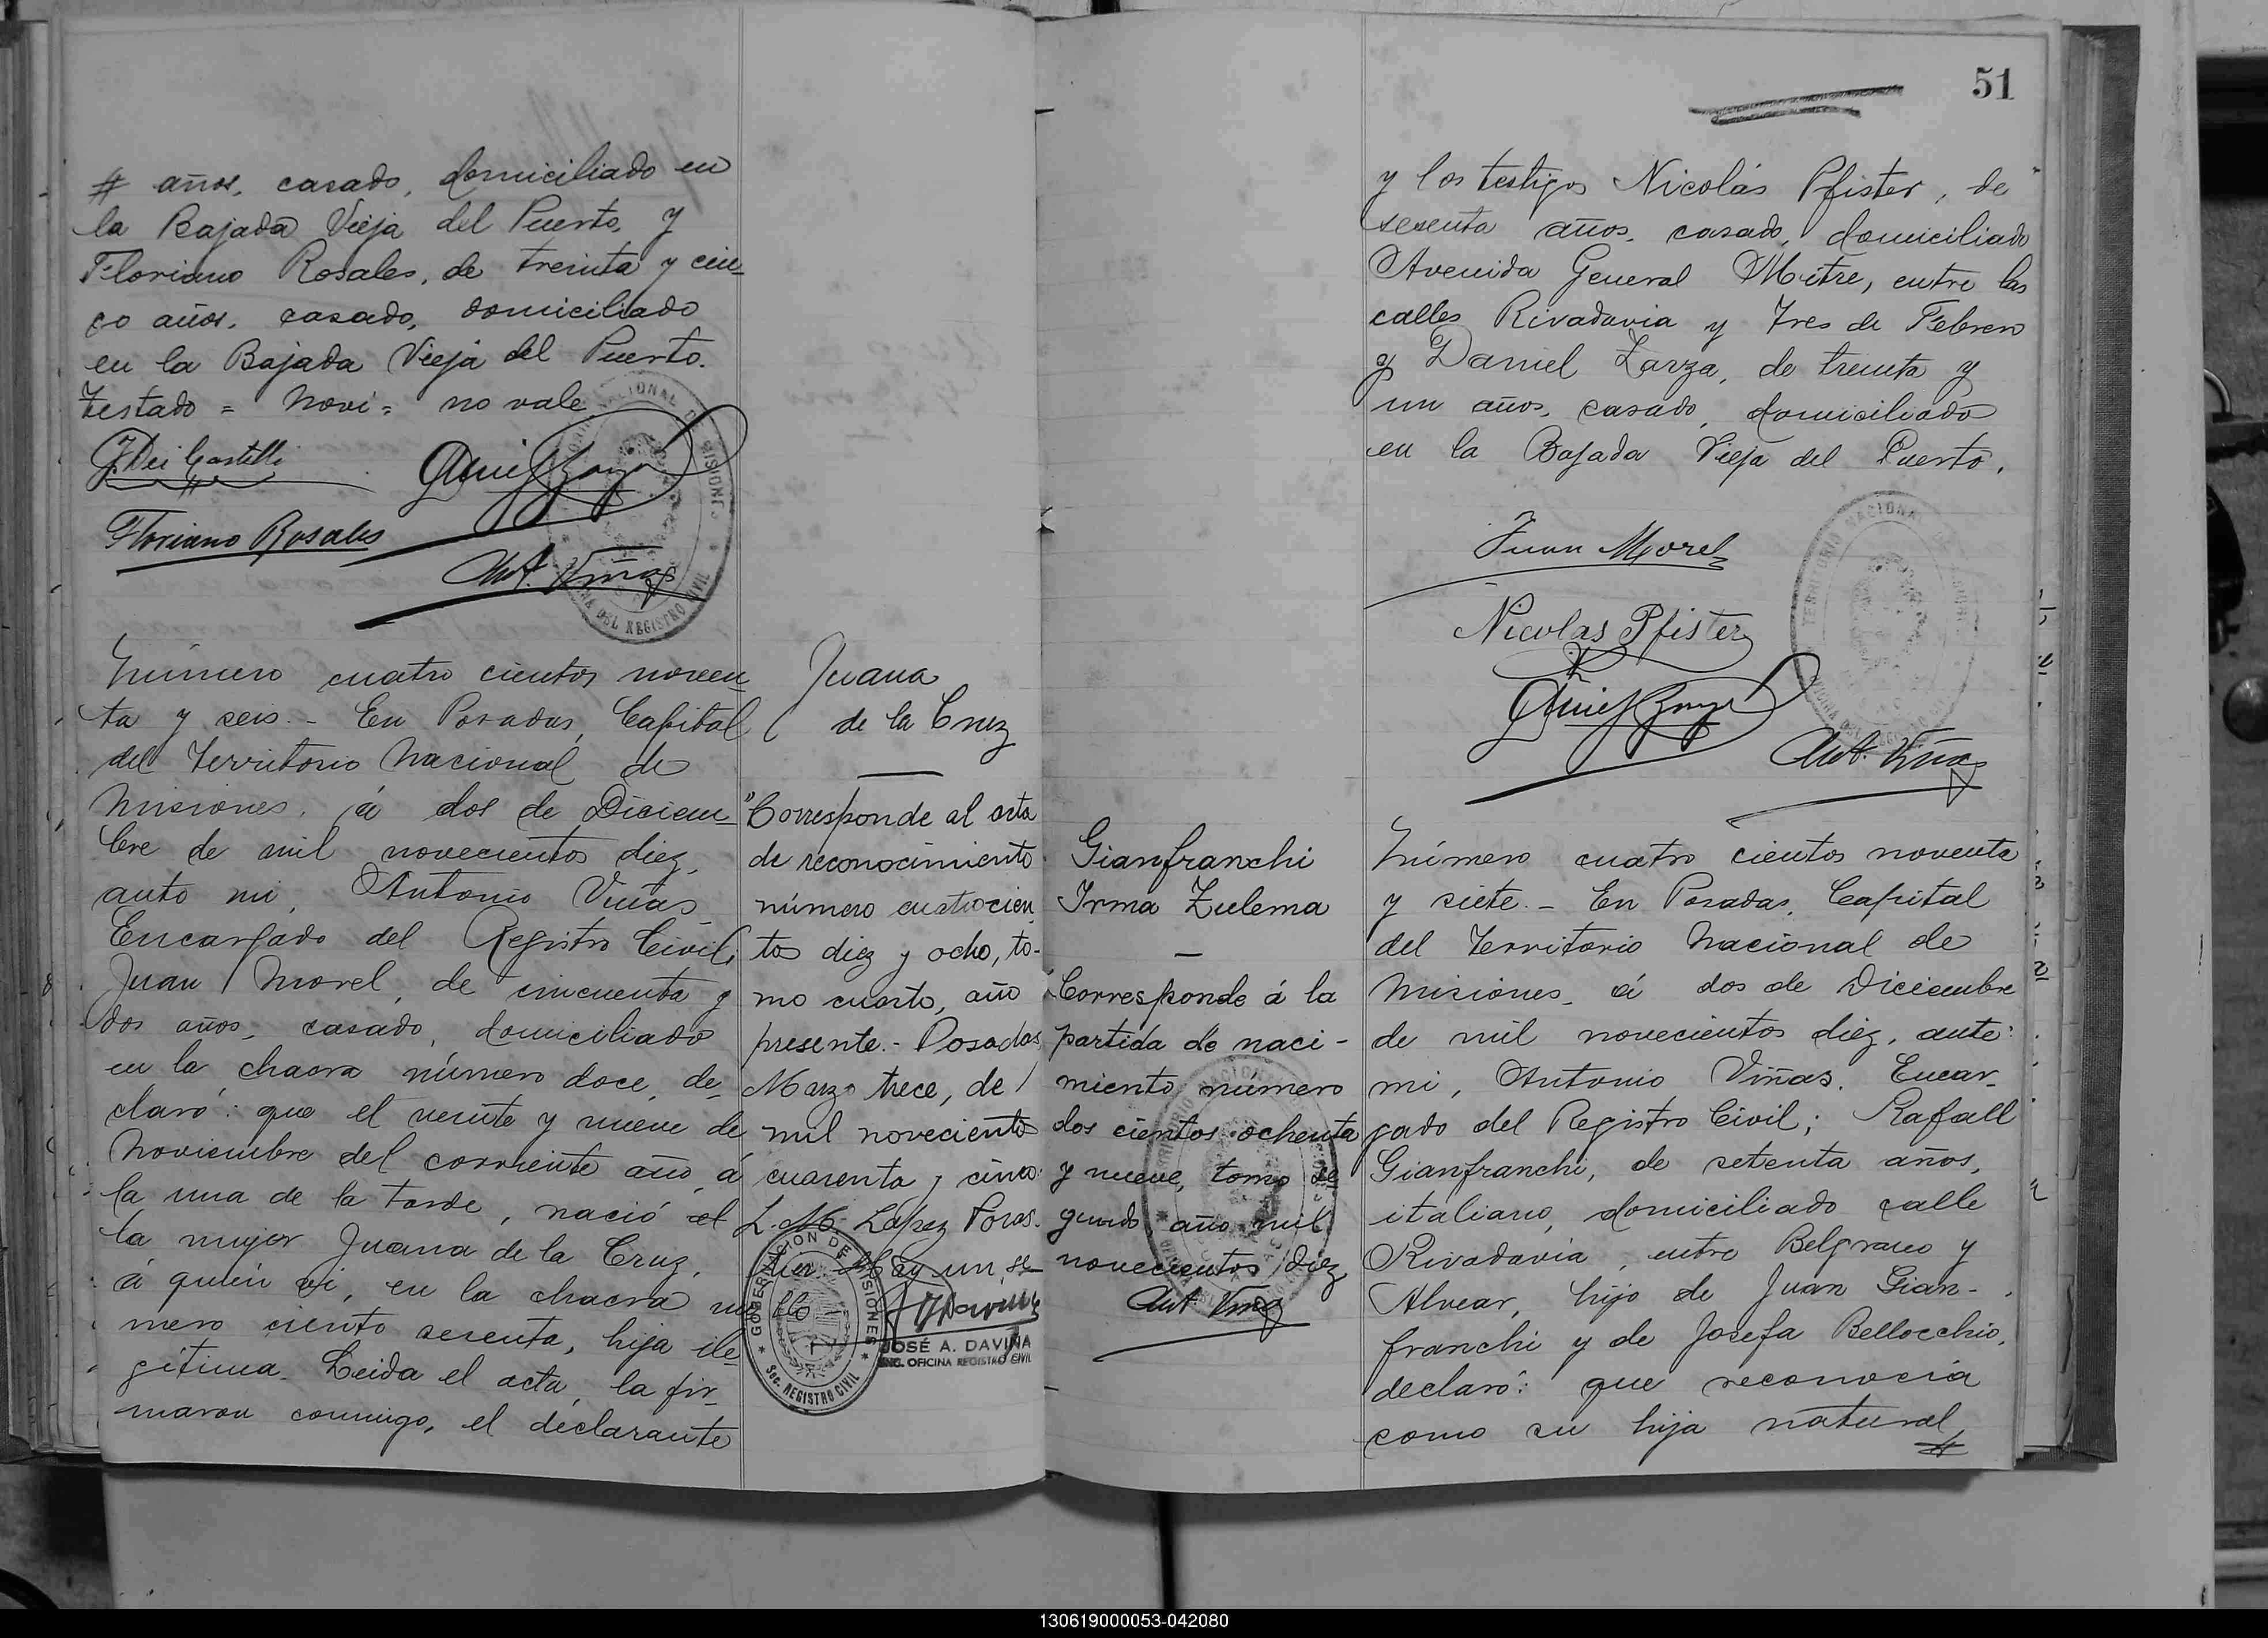 # años, casado, domiciliado en
la Bajada Vieja del Puerto, y
Floriano Rosales, de treinta y cin_
co años, casado, domiciliado
en la Bajada Vieja del Puerto.
Testado = Novi = no vale
J. Dei Castelli
Floriano Rosales
Ant. Viñas
Número cuatro cientos noven_
ta y seis. - En Posadas, Capital
del Territorio Nacional de
Misiones, á dos de Diciem_
bre de mil novecientos diez,
ante mi, Antonio Viñas
Encargado del Registro Civil,
Juan Morel, de cincuenta y
dos años, casado, domiciliado
en la chacra número doce, de_
claró: que el veinte y nueve de
Noviembre del corriente año, á
la una de la tarde, nació el
la mujer Juana de la Cruz,
á quien vi, en la chacra nú
mero ciento sesenta, hija ile_
gítima. Leida el acta, la fir_
maron conmigo, el declarante
Juana
de la Cruz
"Corresponde al acta
de reconocimiento
número cuatrocien
tos diez y ocho, to-
mo cuarto, año
presente.- Posadas
Marzo trece, de
mil novecientos
cuarenta y cinco:
L. M. López Poras.
Hay un se_
llo -
GOBERNACION DE MISIONES
Sec. REGISTRO CIVIL
JOSÉ A. DAVIÑA
ENC. OFICINA REGISTRO CIVIL
51
y los testigos Nicolás Pfister, de
sesenta años, casado, domiciliado
Avenida General Mitre, entre las
calles Rivadavia y Tres de Febrero
y Daniel Zarza, de treinta y
un años, casado, domiciliado
en la Bajada Vieja del Puerto.
Juan Morel
Nicolas Pfister
Ant. Viñas
Gianfranchi
Irma Zulema
Corresponde á la
partida de naci-
miento número
dos cientos ochenta
y nueve, tomo se
gundo año mil
novecientos diez
Ant. Viñas
Número cuatro cientos noventa
y siete. - En Posadas, Capital
del Territorio Nacional de
Misiones, á dos de Diciembre
de mil novecientos diez, ante
mi, Antonio Viñas, Encar_
gado del Registro Civil; Rafall
Gianfranchi, de setenta años,
italiano, domiciliado calle
Rivadavia, entre Belgrano y
Alvear, hijo de Juan Gian-
franchi y de Josefa Bellocchio,
declaró: que reconocía
como su hija natural
#
130619000053-042080